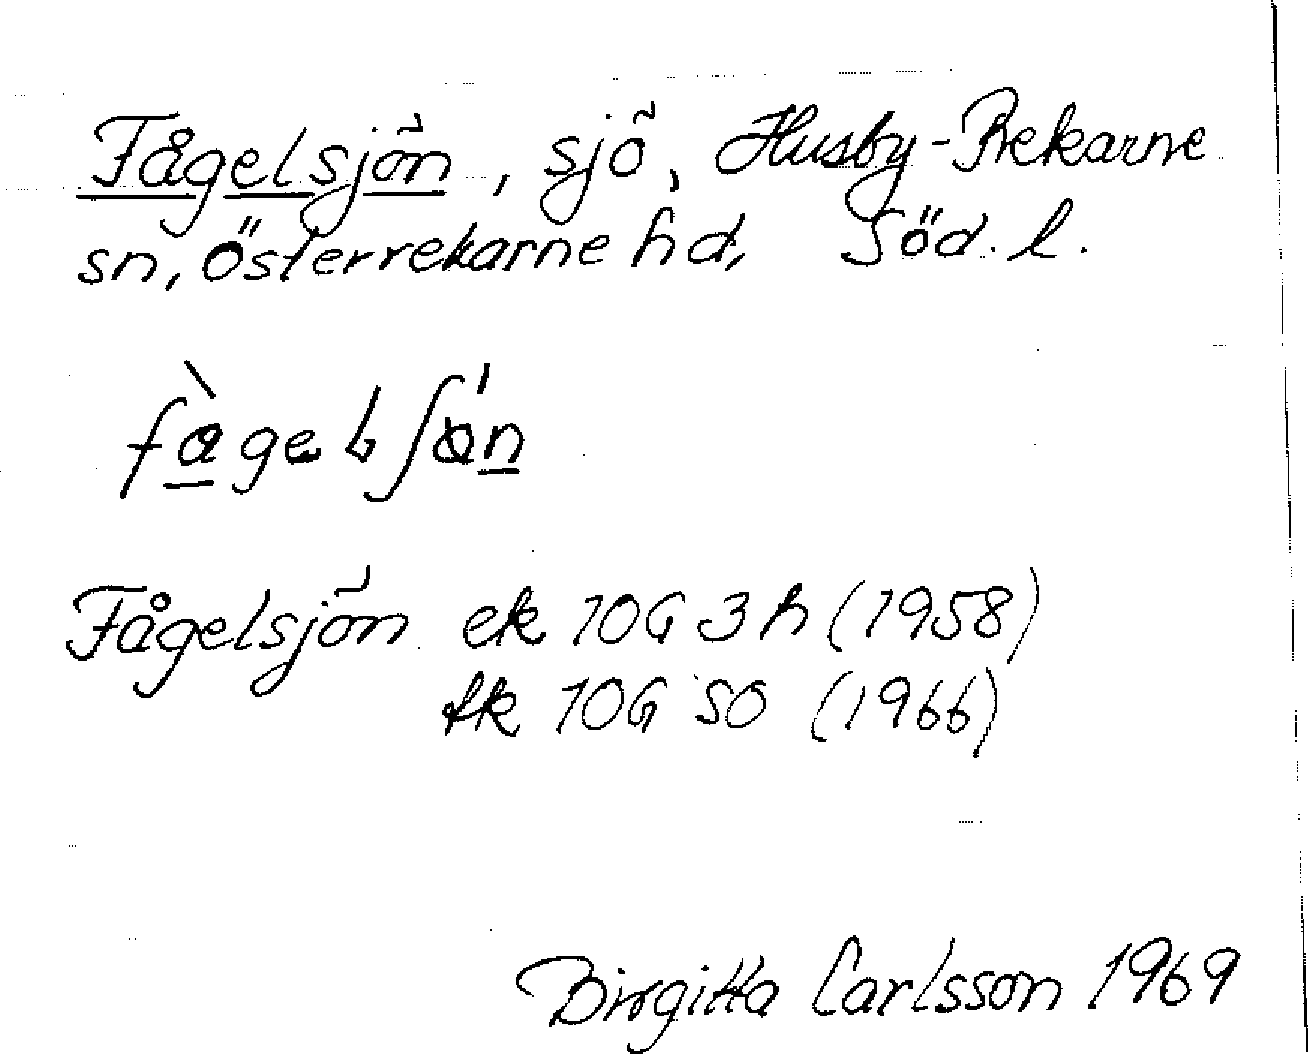 Fågelsjön, sjö, Husby-Rekarne
sn, Österrekarne hd, Söd. l.
Fågelsjön ek 10G 3h (1958)
fk 10G SO (1966)
Birgitta Carlsson 1969